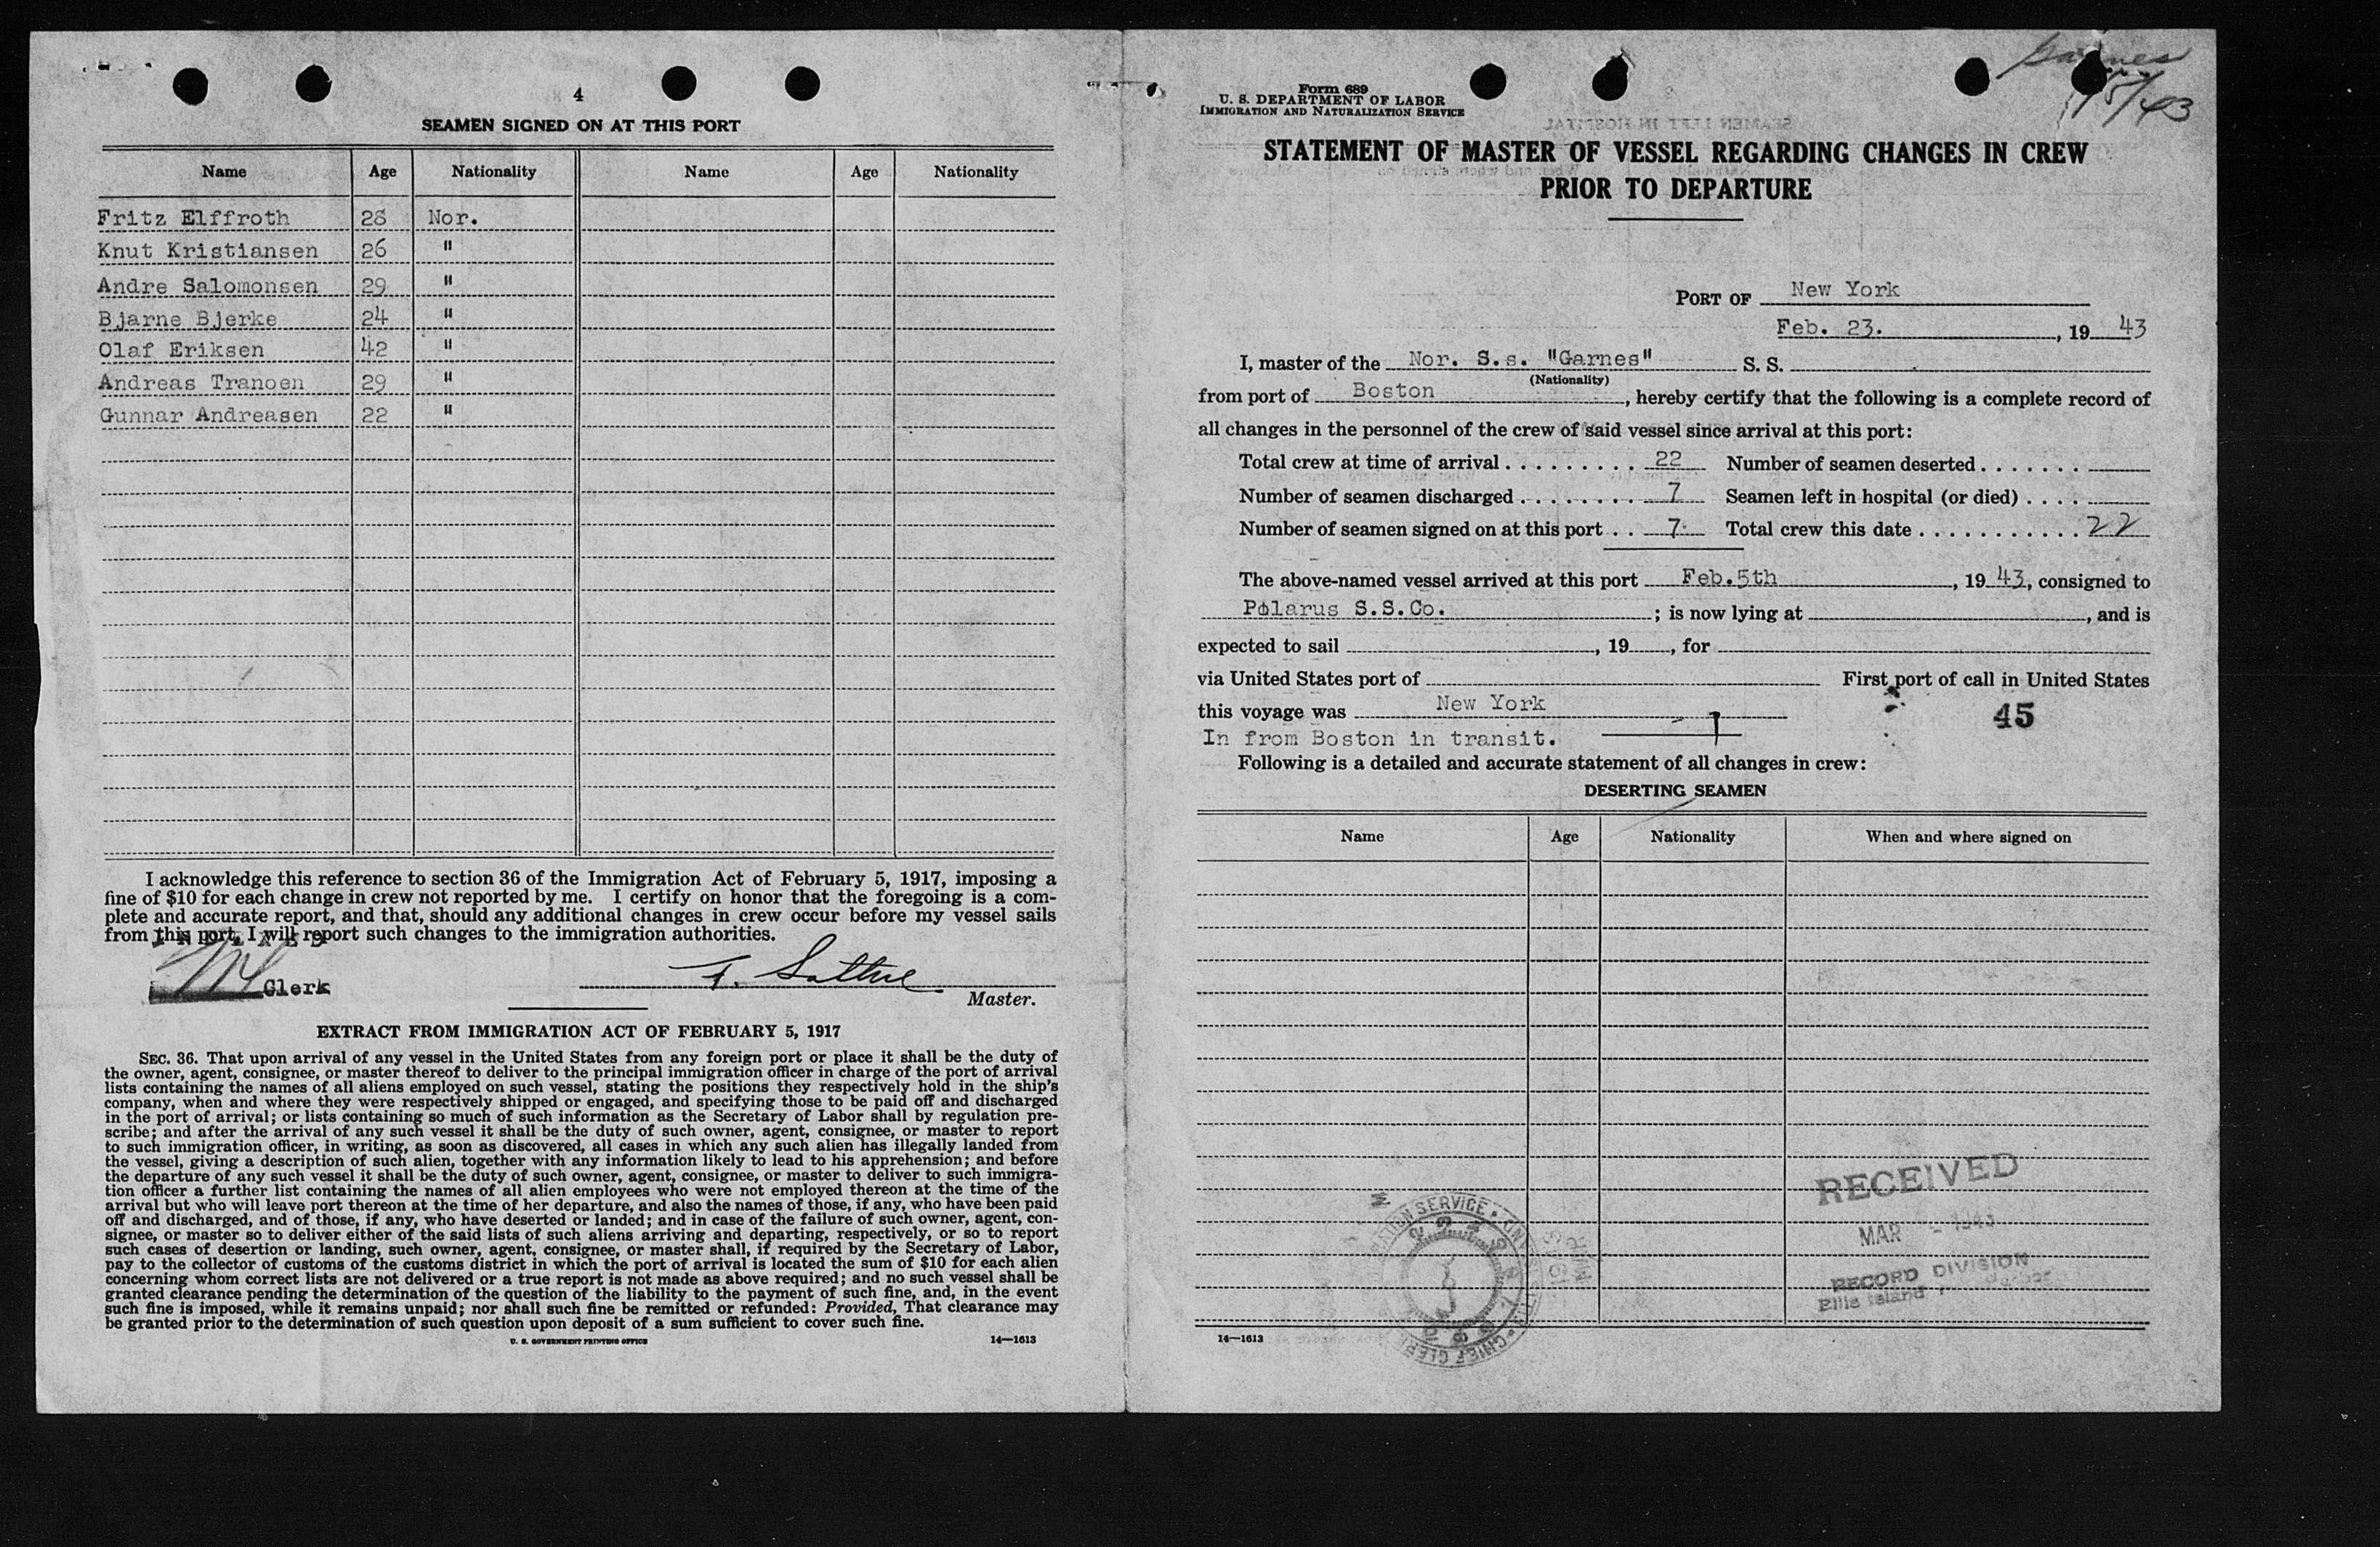 4
SEAMEN SIGNED ON AT THIS PORT
Name Age Nationality Name Age Nationality
Fritz Elffroth 28 Nor.
Knut Kristiansen 26 "
Andre Salomonsen 29 "
Bjarne Bjerke 24 "
Olaf Eriksen 42 "
Andreas Tranoen 29 "
Gunnar Andreasen 22 "
I acknowledge this reference to section 36 of the Immigration Act of February 5, 1917, imposing a
fine of $10 for each change in crew not reported by me. I certify on honor that the foregoing is a com-
plete and accurate report, and that, should any additional changes in crew occur before my vessel sails
from this port, I will report such changes to the immigration authorities.
Clerk
Master.
EXTRACT FROM IMMIGRATION ACT OF FEBRUARY 5, 1917
SEC. 36. That upon arrival of any vessel in the United States from any foreign port or place it shall be the duty of
the owner, agent, consignee, or master thereof to deliver to the principal immigration officer in charge of the port of arrival
lists containing the names of all aliens employed on such vessel, stating the positions they respectively hold in the ship's
company, when and where they were respectively shipped or engaged, and specifying those to be paid off and discharged
in the port of arrival; or lists containing so much of such information as the Secretary of Labor shall by regulation pre-
scribe; and after the arrival of any such vessel it shall be the duty of such owner, agent, consignee, or master to report
to such immigration officer, in writing, as soon as discovered, all cases in which any such alien has illegally landed from
the vessel, giving a description of such alien, together with any information likely to lead to his apprehension; and before
the departure of any such vessel it shall be the duty of such owner, agent, consignee, or master to deliver to such immigra-
tion officer a further list containing the names of all alien employees who were not employed thereon at the time of the
arrival but who will leave port thereon at the time of her departure, and also the names of those, if any, who have been paid
off and discharged, and of those, if any, who have deserted or landed; and in case of the failure of such owner, agent, con-
signee, or master so to deliver either of the said lists of such aliens arriving and departing, respectively, or so to report
such cases of desertion or landing, such owner, agent, consignee, or master shall, if required by the Secretary of Labor,
pay to the collector of customs of the customs district in which the port of arrival is located the sum of $10 for each alien
concerning whom correct lists are not delivered or a true report is not made as above required; and no such vessel shall be
granted clearance pending the determination of the question of the liability to the payment of such fine, and, in the event
such fine is imposed, while it remains unpaid; nor shall such fine be remitted or refunded: Provided, That clearance may
be granted prior to the determination of such question upon deposit of a sum sufficient to cover such fine.
U. S. GOVERNMENT PRINTING OFFICE 14—1613
Garnes
Form 689
U. S. DEPARTMENT OF LABOR
IMMIGRATION AND NATURALIZATION SERVICE
STATEMENT OF MASTER OF VESSEL REGARDING CHANGES IN CREW
PRIOR TO DEPARTURE
PORT OF New York
Feb. 23. , 19 43
I, master of the Nor. S.s. "Garnes" S. S.
(Nationality)
from port of Boston , hereby certify that the following is a complete record of
all changes in the personnel of the crew of said vessel since arrival at this port:
Total crew at time of arrival . . . . . . . . . 22 Number of seamen deserted . . . . . . .
Number of seamen discharged . . . . . . . . 7 Seamen left in hospital (or died) . . . .
Number of seamen signed on at this port . . 7 Total crew this date . . . . . . . . . . . 22
The above-named vessel arrived at this port Feb.5th , 19 43, consigned to
Polarus S.S.Co. ; is now lying at , and is
expected to sail , 19 , for
via United States port of First port of call in United States
this voyage was New York
45
In from Boston in transit.
Following is a detailed and accurate statement of all changes in crew:
DESERTING SEAMEN
Name Age Nationality When and where signed on
RECEIVED
MAR 1943
RECORD DIVISION
Ellis Island
14—1613